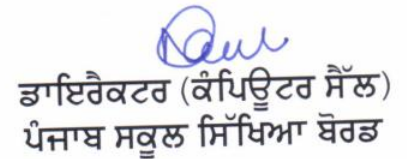 ਡਾਇਰੈਕਟਰ (ਕੰਪਿਊਟਰ ਸੈੱਲ)
ਪੰਜਾਬ ਸਕੂਲ ਸਿੱਖਿਆ ਬੋਰਡ